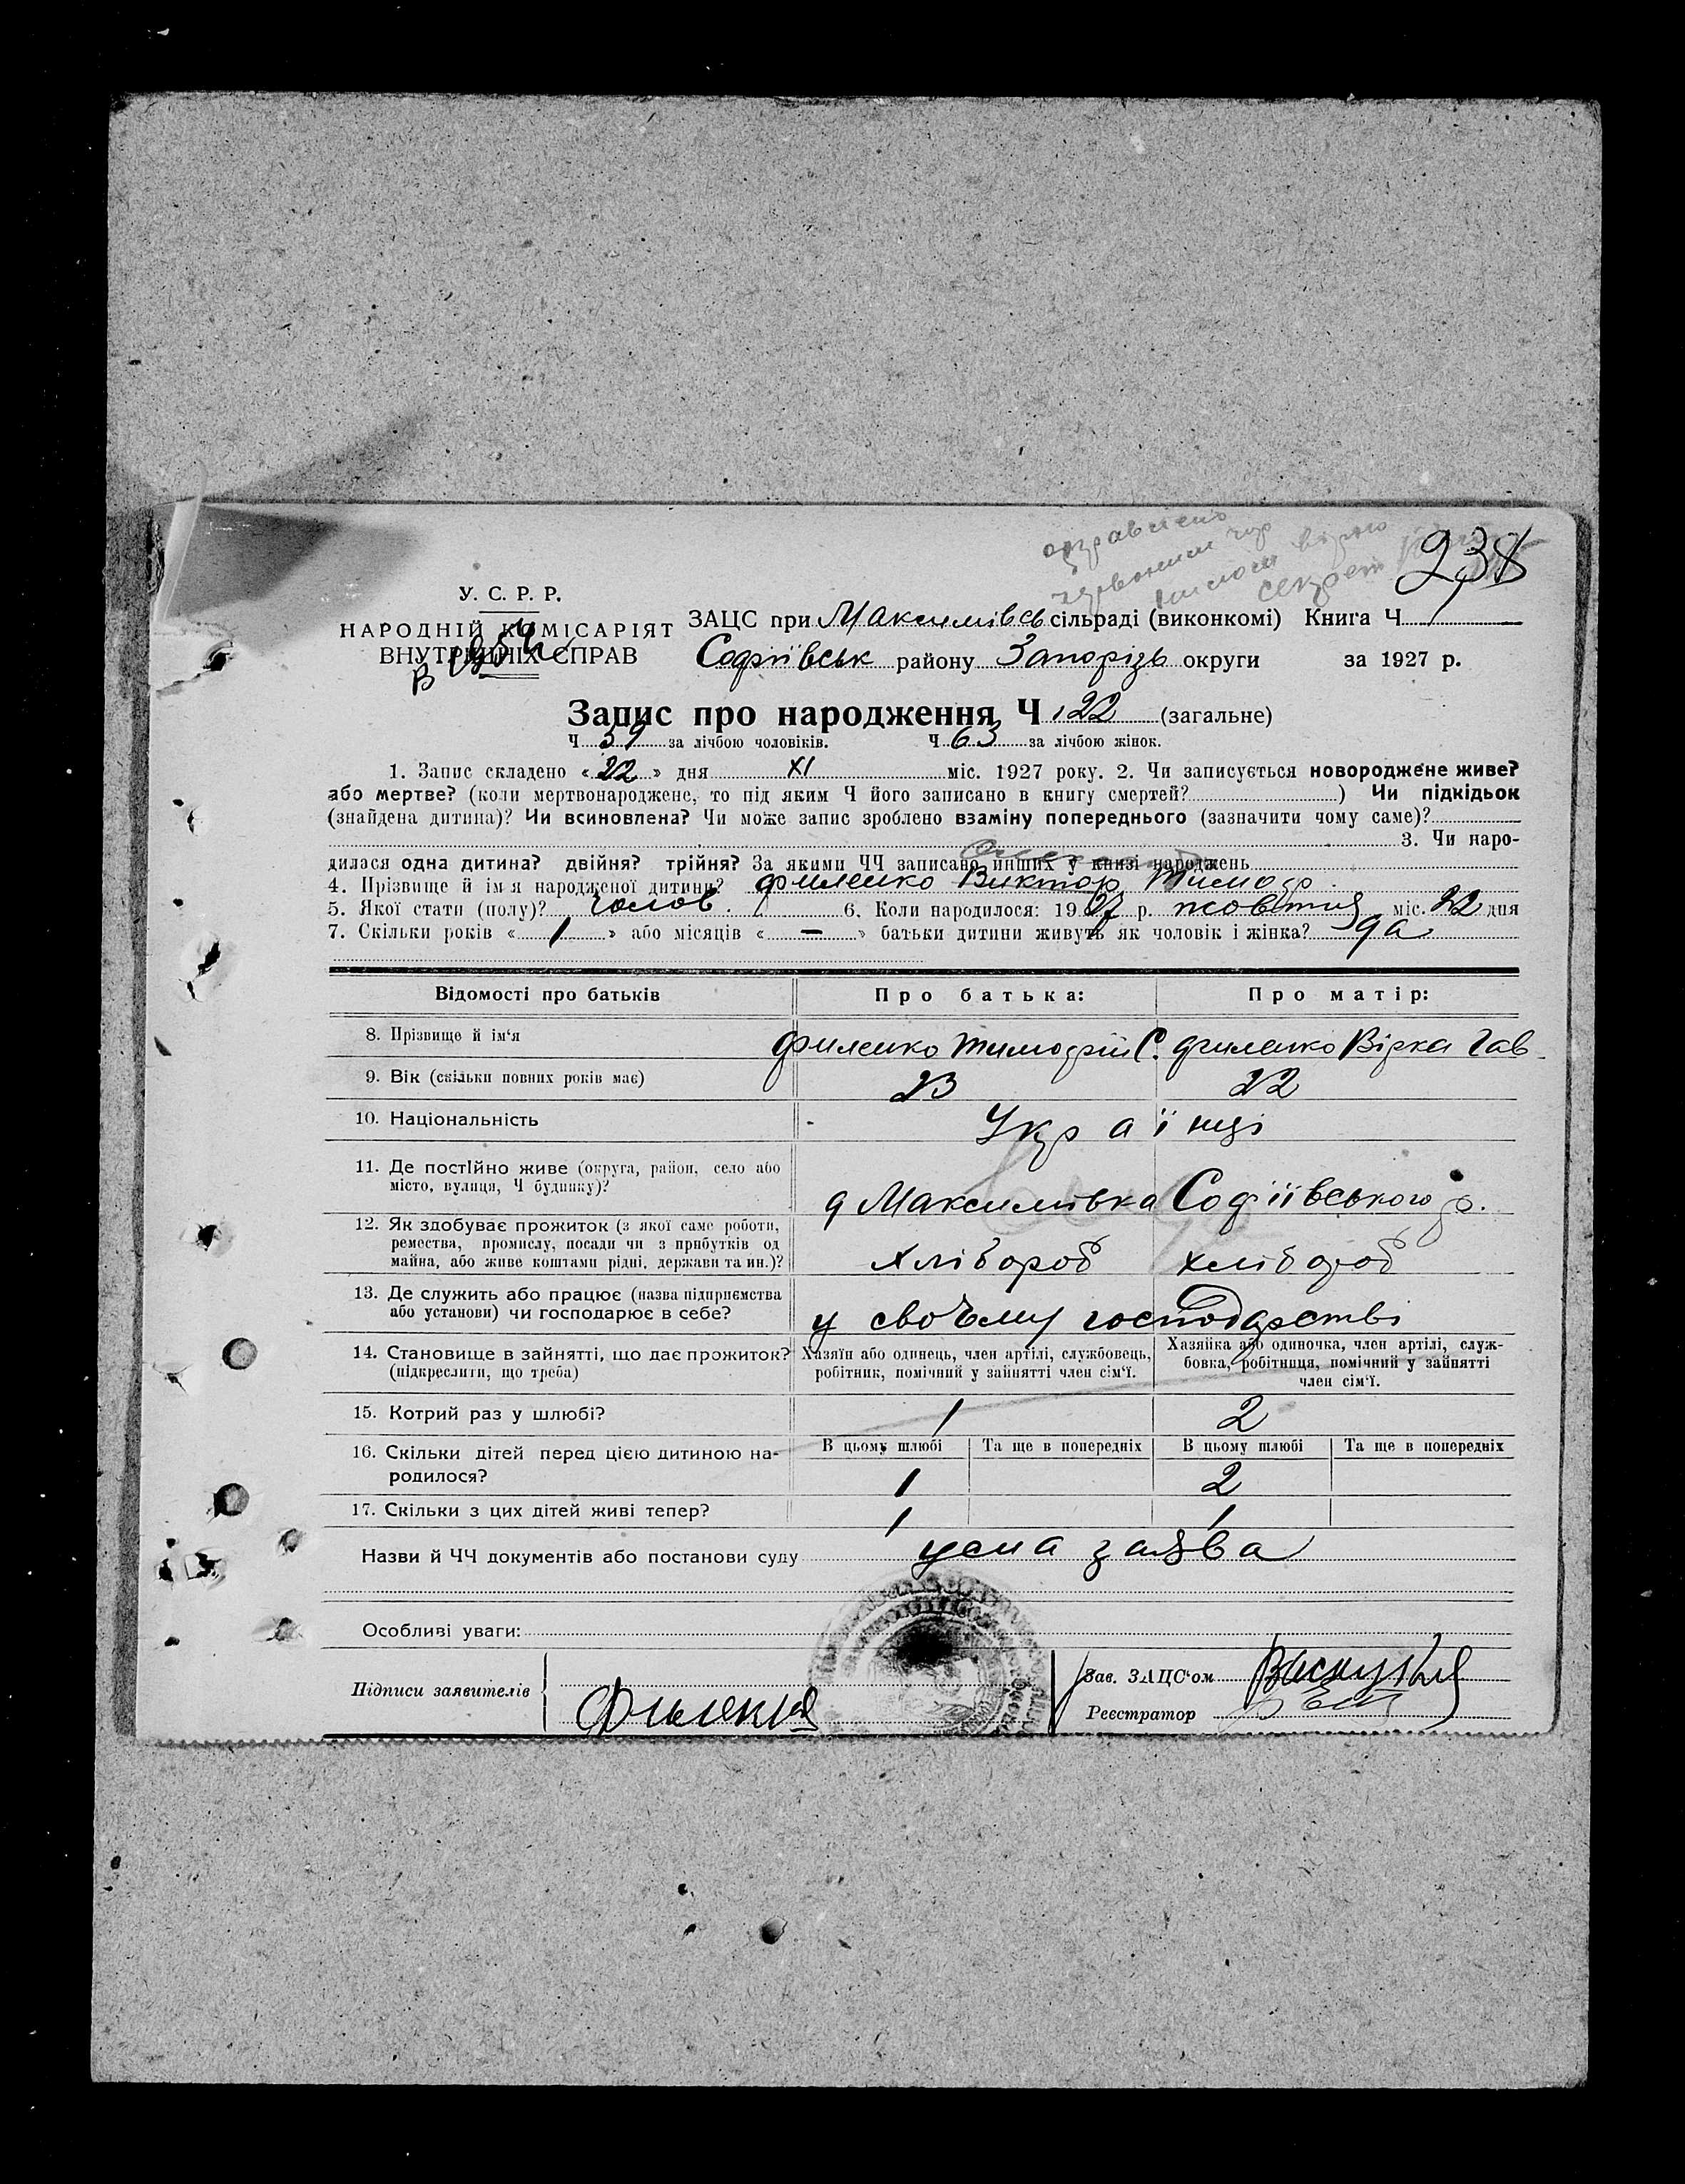 238
У. С. Р. Р.
НАРОДНІЙ КОМІСАРІЯТ
ВНУТРІШНІХ СПРАВ
ЗАЦС при Максимівсь сільраді (виконкомі) Книга Ч.
Софіївськ району Запорізь округи за 1927 р.
Запис про народження Ч 122 (загальне)
Ч 59 за лічбою чоловіків. Ч 63 за лічбою жінок.
1. Запис складено « 22 » дня XI міс. 1927 року. 2. Чи записується новороджене живе?
або мертве? (коли мертвонароджене, то під яким Ч його записано в книгу смертей? ) Чи підкідьок
(знайдена дитина)? Чи всиновлена? Чи може запис зроблено взаміну попереднього (зазначити чому саме)?
3. Чи наро-
дилася одна дитина? двійня? трійня? За якими ЧЧ записано инших у книзі народжень
4. Прізвище й ім'я народженої дитини? Филенко Виктор Тимоф.
5. Якої стати (полу)? Чолов. 6. Коли народилося: 1927 р. жовтня міс. 22 дня
7. Скільки років « 1 » або місяців « — » батьки дитини живуть як чоловік і жінка? да
Відомості про батьків Про батька: Про матір:
8. Прізвище й ім'я Филенко Тимофій С. Филенко Вірка Гав
9. Вік (скільки повних років має) 23 22
10. Національність Українці
11. Де постійно живе (округа, район, село або
місто, вулиця, Ч будинку)? д Максимівка Софіївського р.
12. Як здобуває прожиток (з якої саме роботи,
ремества, промислу, посади чи з прибутків од
майна, або живе коштами рідні, держави та ин.)? Хлібороб хлібороб
13. Де служить або працює (назва підприємства
або установи) чи господарює в себе? у своъму господарстві
14. Становище в зайнятті, що дає прожиток? Хазяїн або одинець, член артілі, службовець, Хазяйка або одиночка, член артілі, служ-
(підкреслити, що треба) робітник, помічний у зайнятті член сім'ї. бовка, робітниця, помічний у зайнятті
член сім'ї.
15. Котрий раз у шлюбі? 1 2
16. Скільки дітей перед цією дитиною на- В цьому шлюбі Та ще в попередніх В цьому шлюбі Та ще в попередніх
родилося? 1 2
17. Скільки з цих дітей живі тепер? 1 1
Назви й ЧЧ документів або постанови суду усна заява
Особливі уваги:
Підписи заявителів Зав. ЗАЦС'ом
Реєстратор